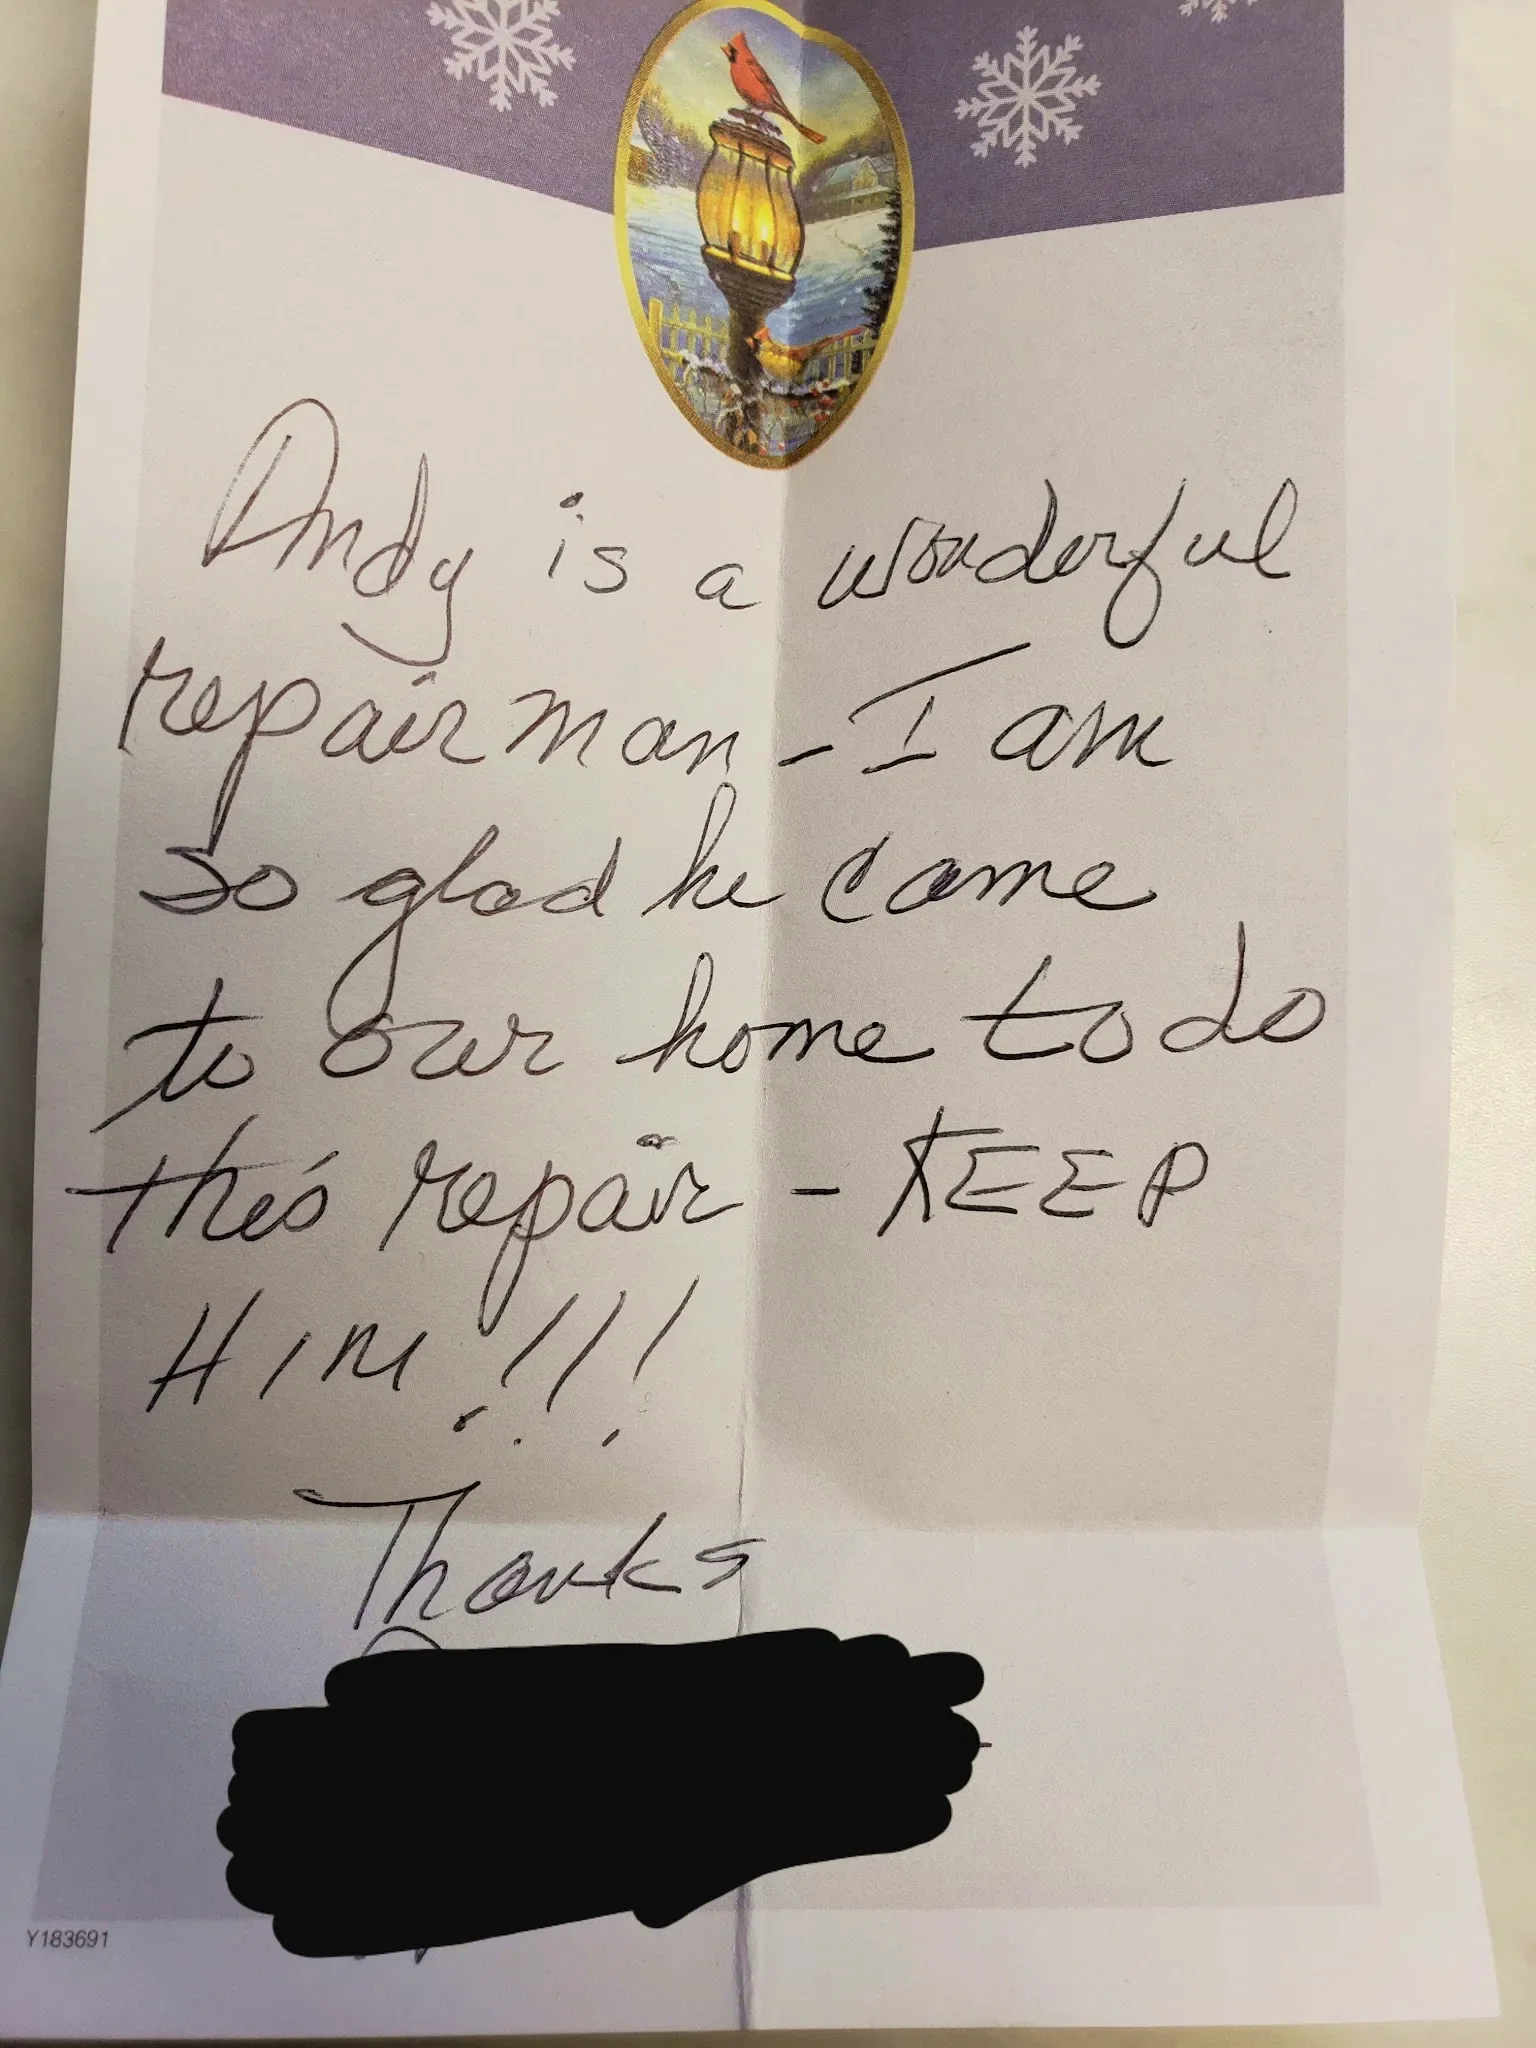 Andy is a wonderful
repair man - I am
so glad he came
to our home to do
this repair - KEEP
HIM!!!
Thanks
Y183691